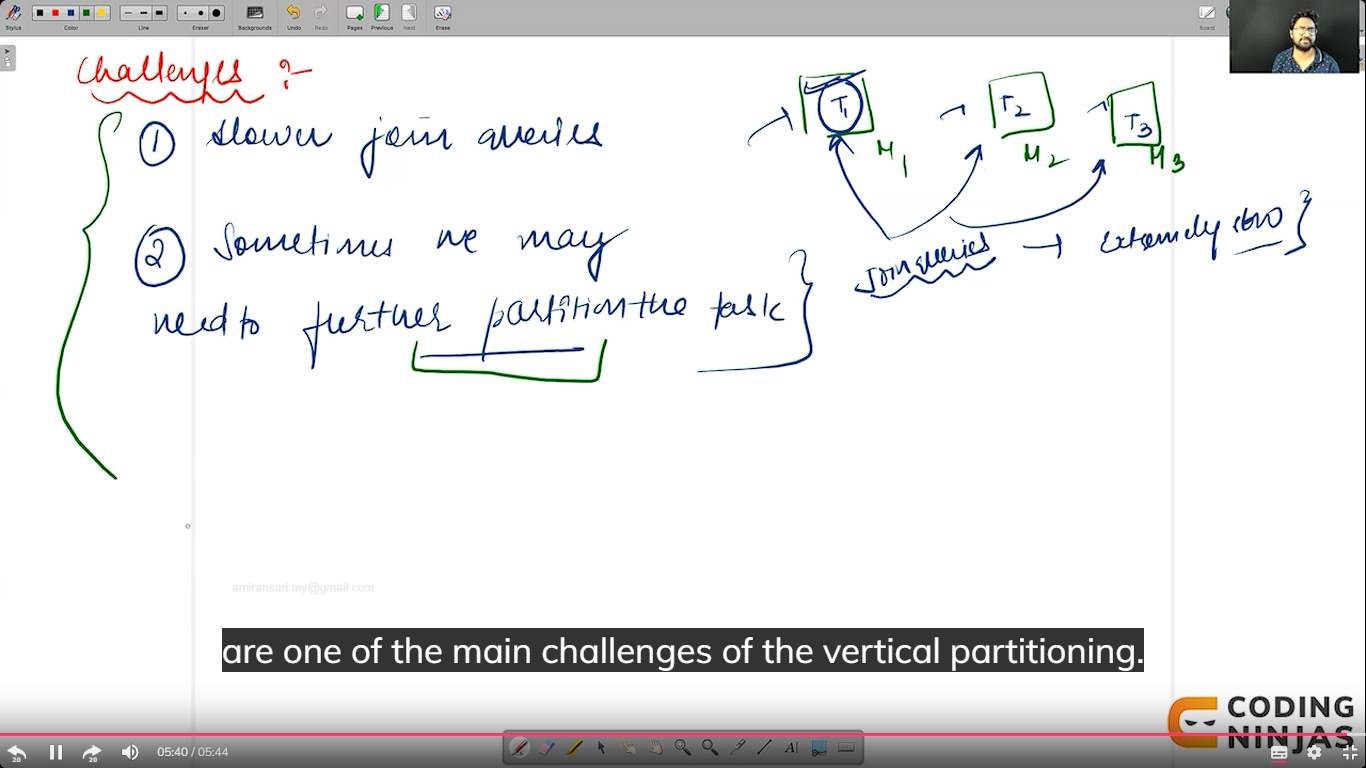 Stylus
Color
Line
Eraser
Backgrounds
Undo
Redo
Pages
Previous
Next
Erase
Board
Challenges :-
① slower join queries
② Sometimes we may
need to further partition the task
T1 T2 T3
M1 M2 M3
Join queries → Extremely slow
amiransari.my@gmail.com
are one of the main challenges of the vertical partitioning.
CODING
NINJAS
20
20
05:40 / 05:44